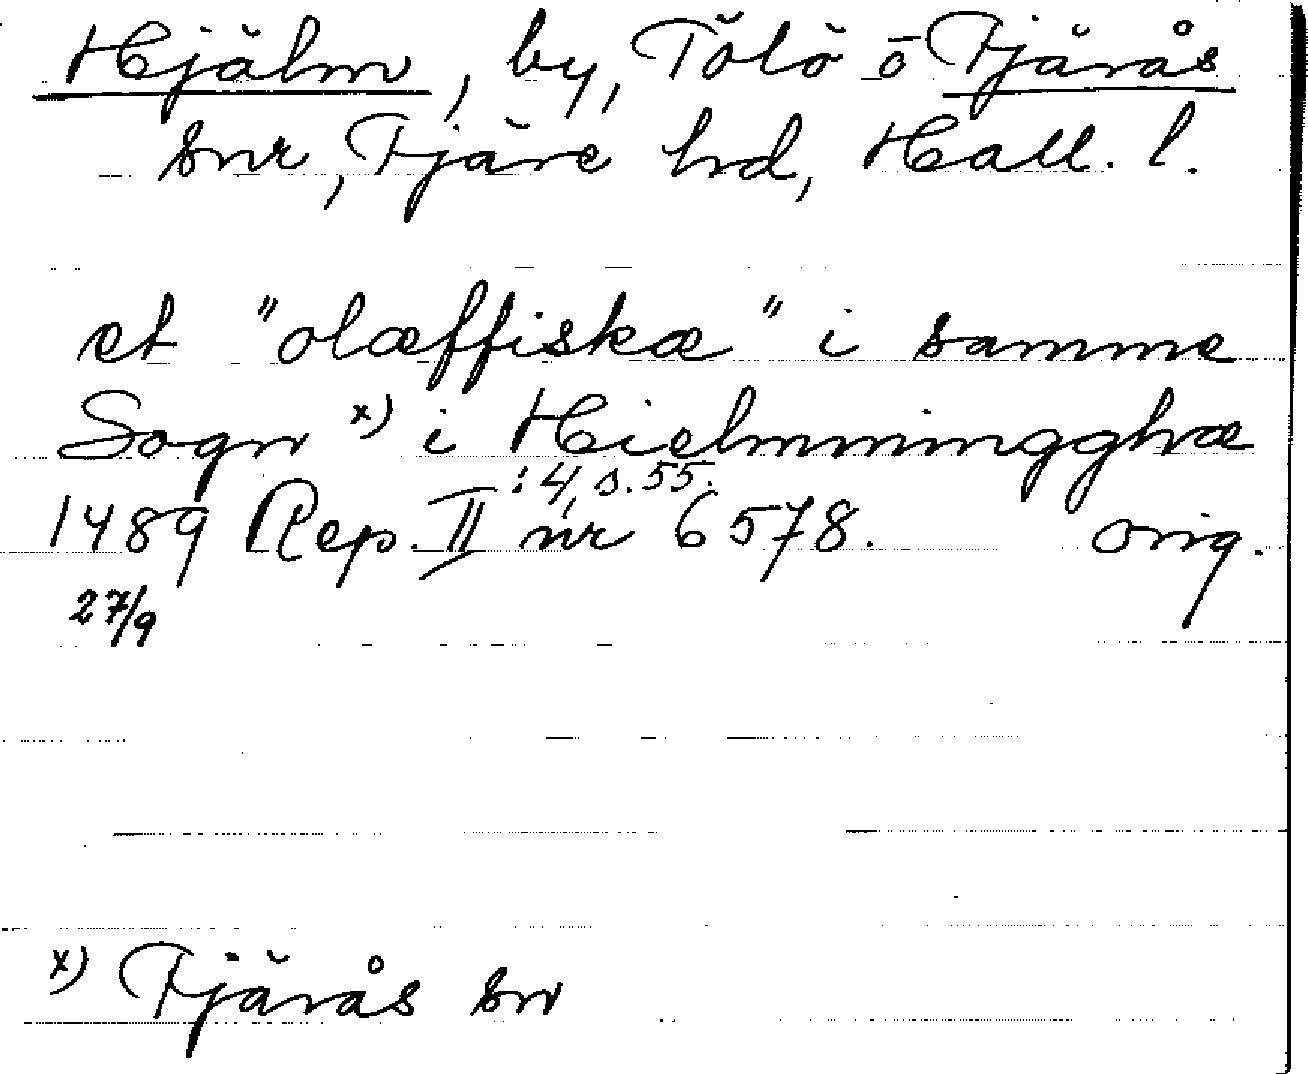 Hjälm, by, Tölö o Fjärås
snr, Fjäre hd, Hall. l.
et "olæffiskæ" i samme
Sogn x) i Hielmmingghæ
: 4, s. 55.
1489 Rep. II nr 6578. orig.
27/9
x) Fjärås sn